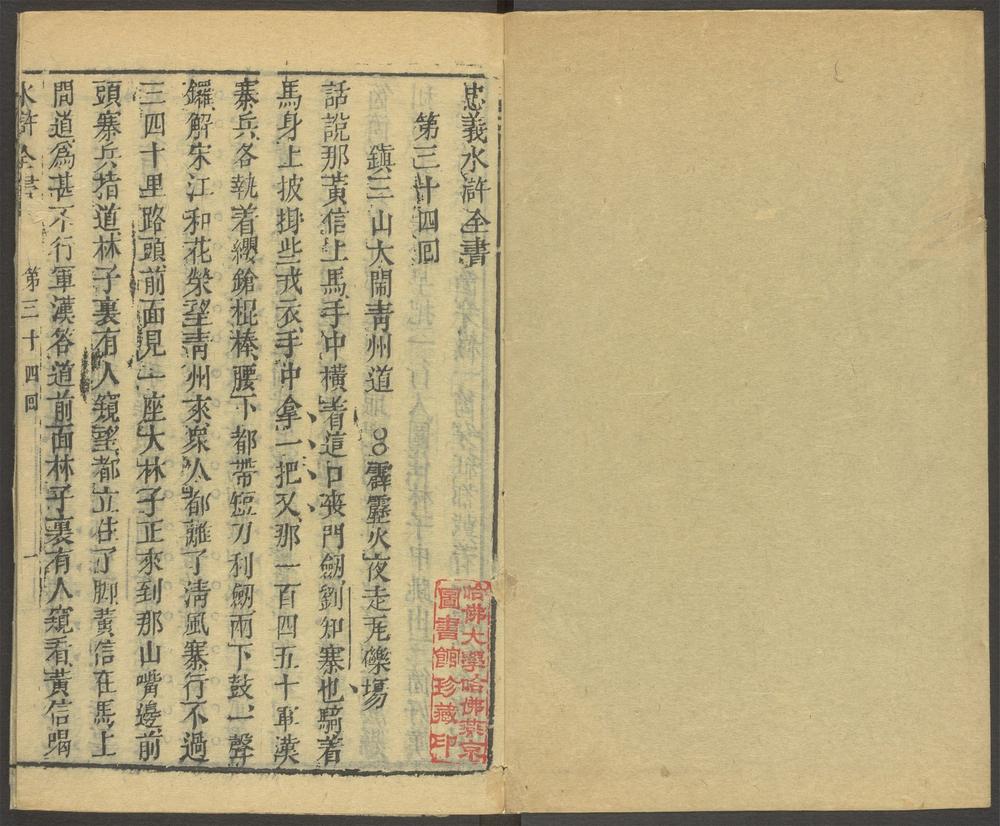 忠義水滸全書
第三十四回
鎮三山大閙青州道　○霹靂火夜走瓦礫塲
話說那黃信上馬手中橫着這口喪門劔劉知寨也騎着
馬身上披掛些戎衣手中拿一把叉那一百四五十軍漢
寨兵各執着纓鎗棍棒腰下都帶短刀利劔兩下鼓一聲
鑼解宋江和花榮望青州來衆人都離了清風寨行不過
三四十里路頭前面見一座大林子正來到那山嘴邊前
頭寨兵指道林子裏有人窺望都立住了脚黃信在馬上
問道爲甚不行軍漢答道前面林子裏有人窺看黃信喝
水滸全書　第三十四回　一
哈佛大學哈佛燕京
圖書館珍藏印